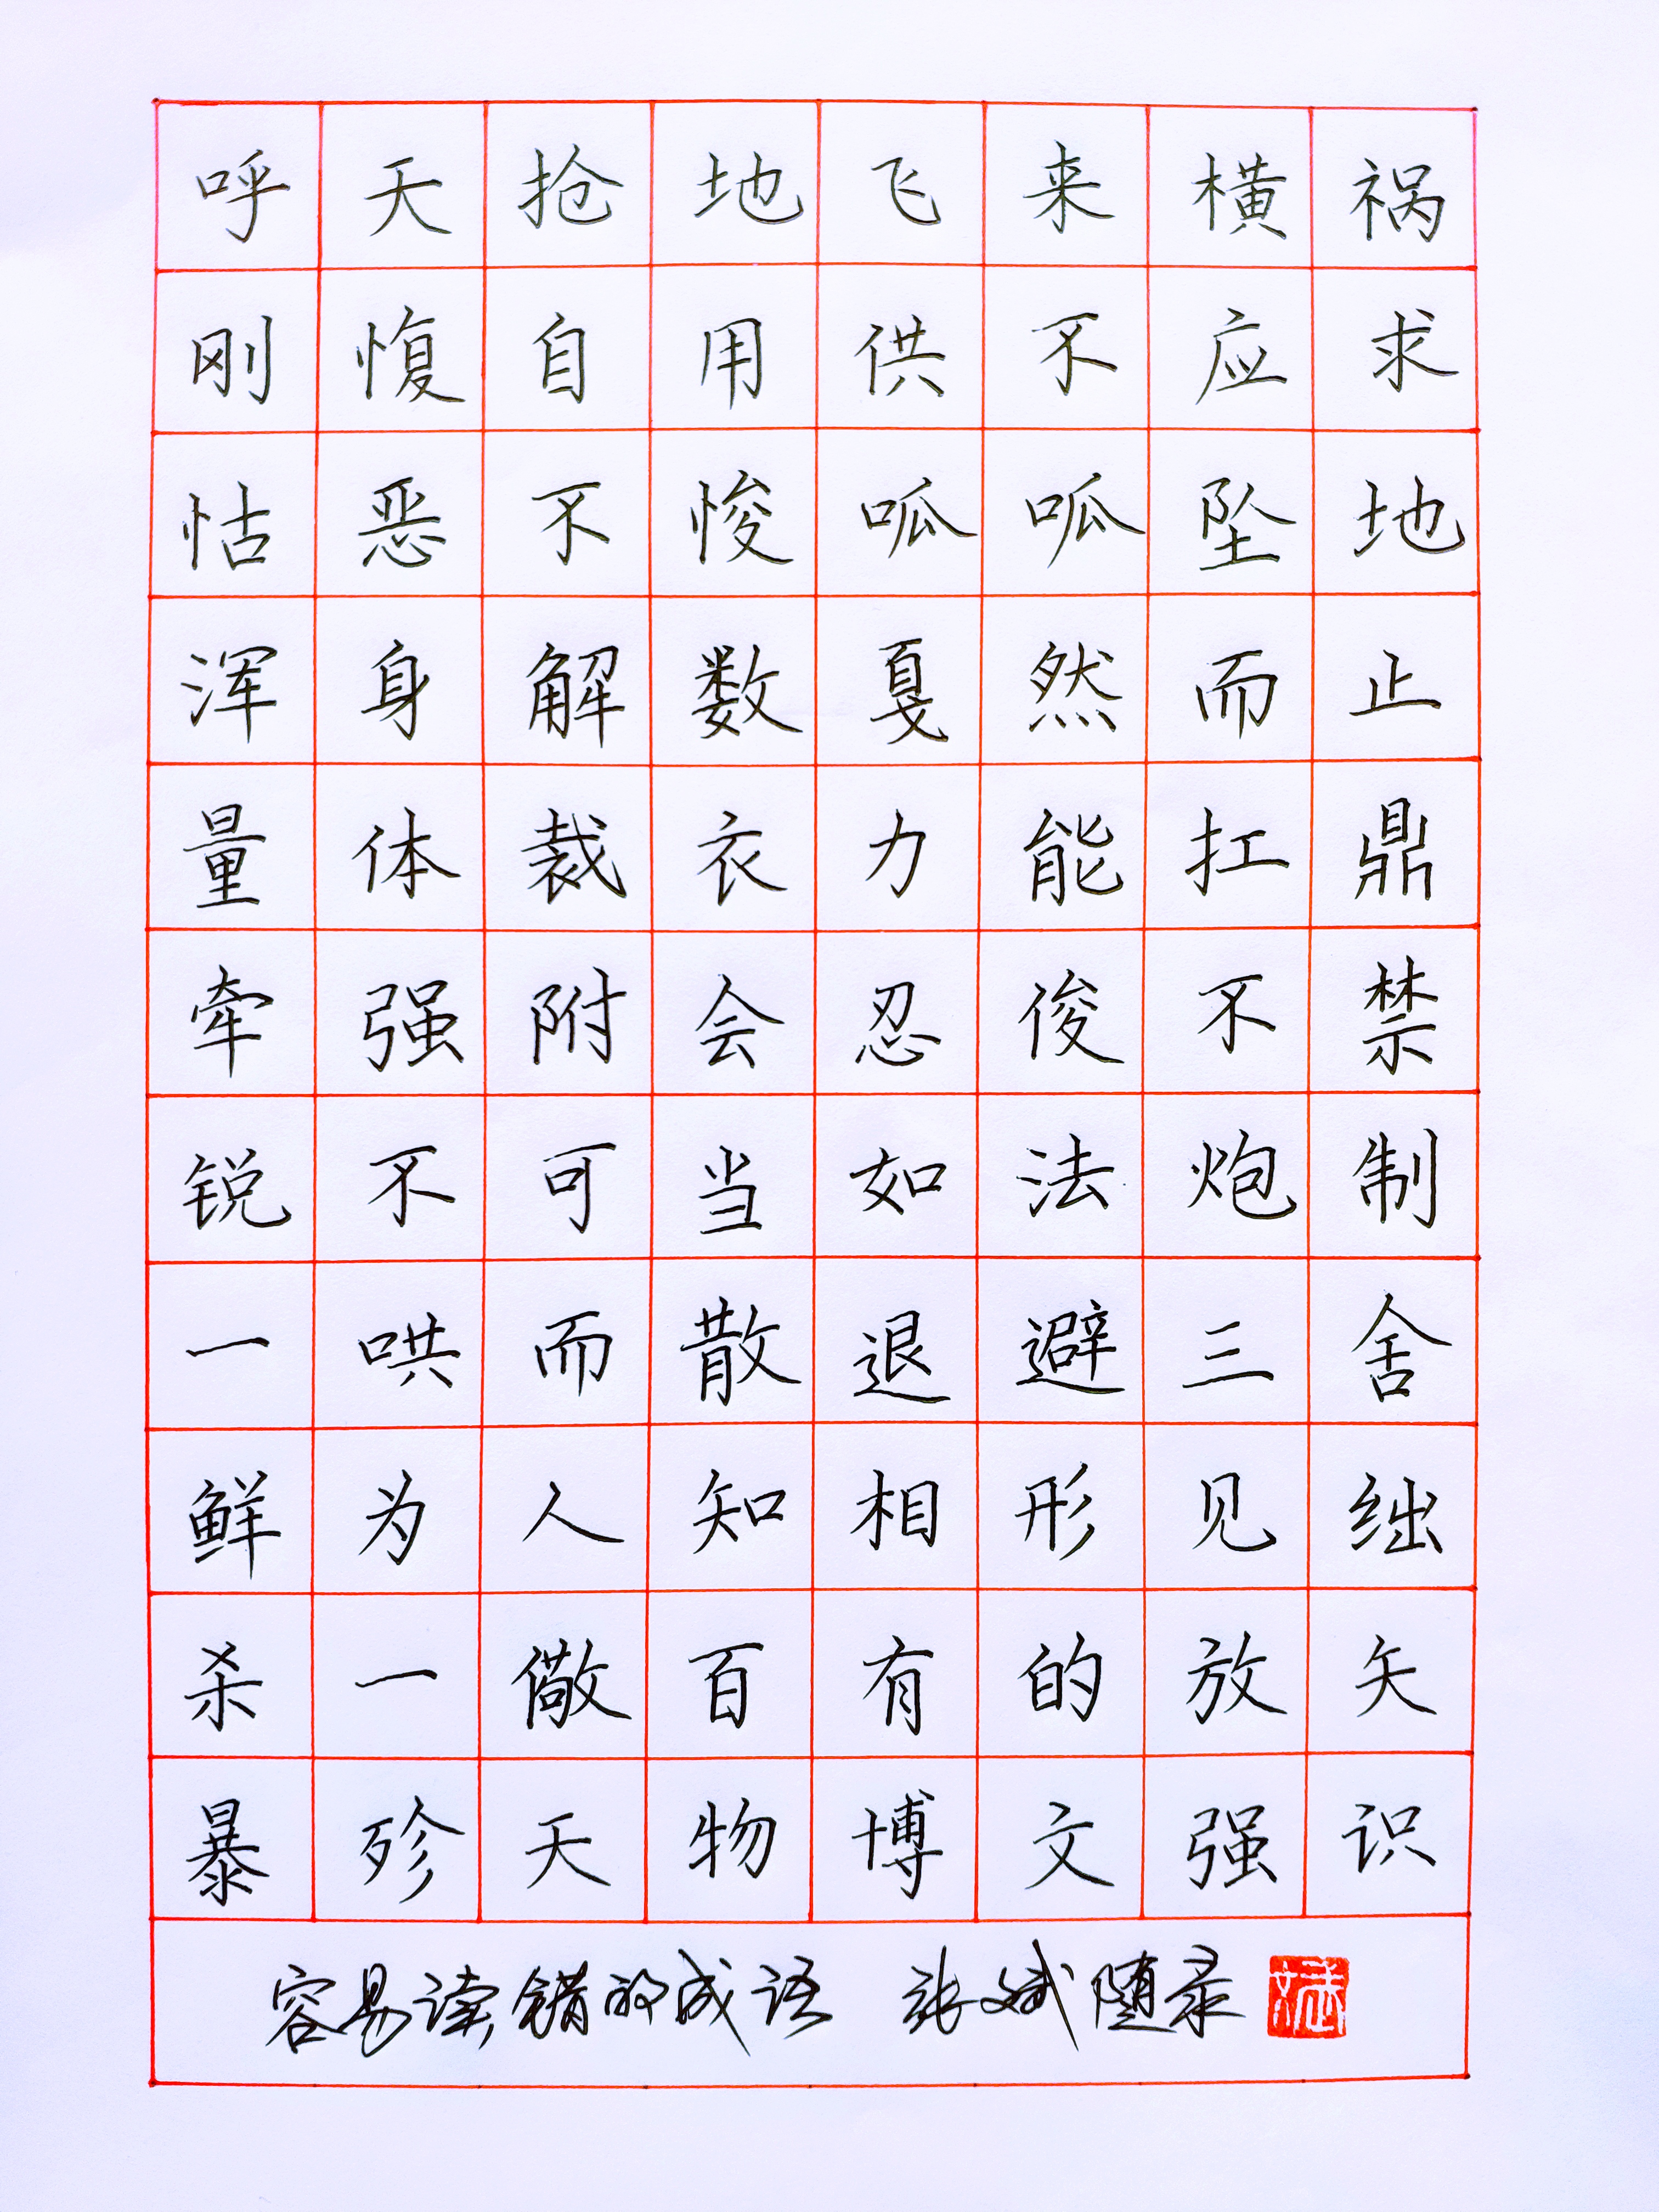 呼天抢地飞来横祸
刚愎自用供不应求
怙恶不悛呱呱坠地
浑身解数戛然而止
量体裁衣力能扛鼎
牵强附会忍俊不禁
锐不可当如法炮制
一哄而散退避三舍
鲜为人知相形见绌
杀一儆百有的放矢
暴殄天物博文强识
容易读错的成语 张斌随录
斌